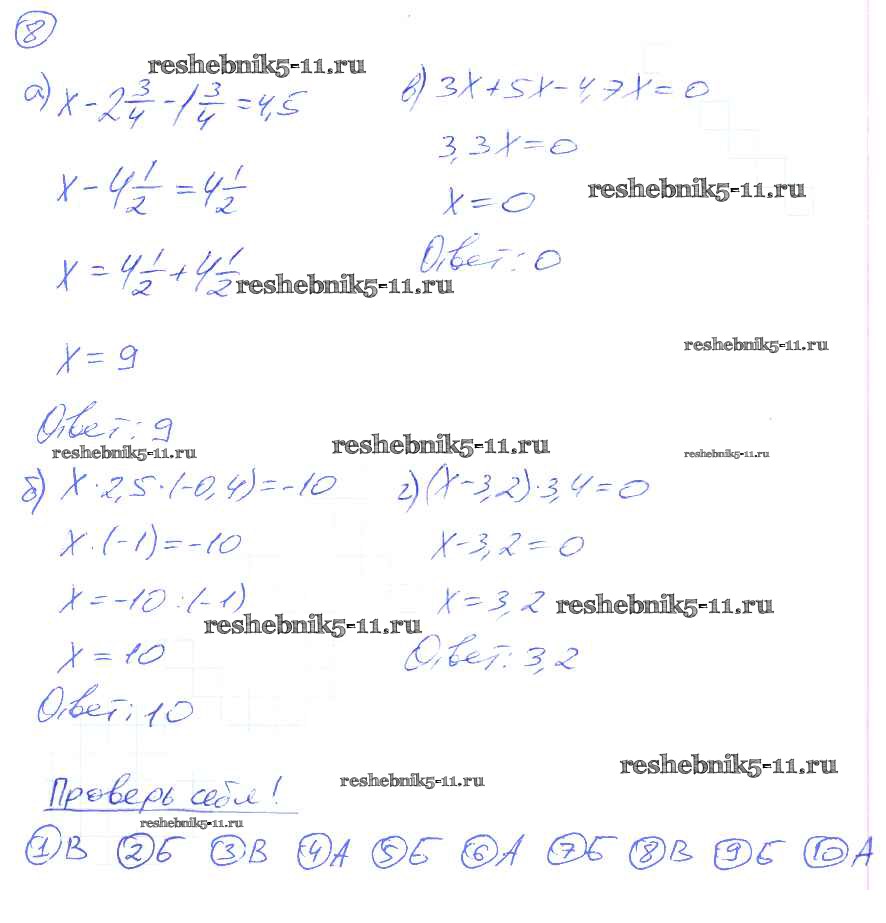 8
reshebnik5-11.ru
а) x - 2 3/4 - 1 3/4 = 4,5
x - 4 1/2 = 4 1/2
x = 4 1/2 + 4 1/2
reshebnik5-11.ru
x = 9
Ответ: 9
reshebnik5-11.ru
в) 3x + 5x - 4,7x = 0
3,3x = 0
reshebnik5-11.ru
x = 0
Ответ: 0
reshebnik5-11.ru
reshebnik5-11.ru
reshebnik5-11.ru
б) x · 2,5 · (-0,4) = -10
x · (-1) = -10
x = -10 : (-1)
reshebnik5-11.ru
x = 10
Ответ: 10
г) (x - 3,2) · 3,4 = 0
x - 3,2 = 0
x = 3,2 reshebnik5-11.ru
Ответ: 3,2
reshebnik5-11.ru
reshebnik5-11.ru
Проверь себя!
reshebnik5-11.ru
1 В 2 Б 3 В 4 А 5 Б 6 А 7 Б 8 В 9 Б 10 А